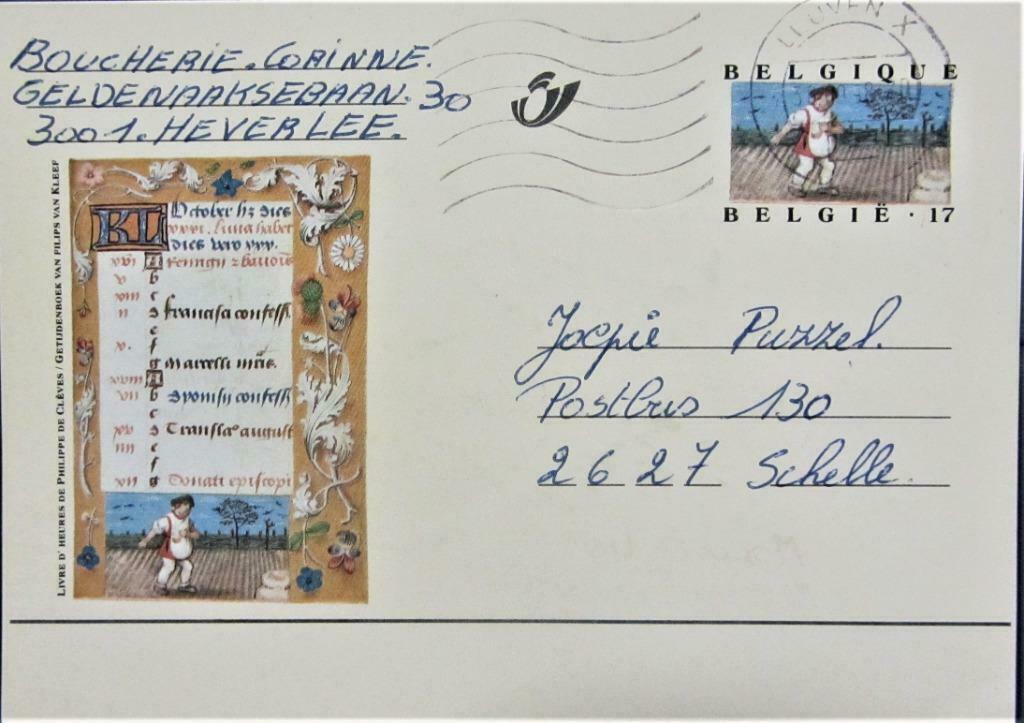 BOUCHERIE. CORINNE.
GELDENAAKSEBAAN. 30
3001. HEVERLEE.
LEUVEN X
BELGIQUE
BELGIË · 17
LIVRE D' HEURES DE PHILIPPE DE CLÈVES / GETIJDENBOEK VAN FILIPS VAN KLEEF
KL
October hz dies
xxxi. luna habet
dies vero xxx.
xvi a Remigii z bavonis
v b
xiii c
ii d francisci confess.
e
x. f
g Marcelli mris.
xviii a
vii b Dyonisii confess
c
xv d Translao august
iiii e
f
xii g Donati episcopi
Jocpie Puzzel.
Postbus 130
2627 Schelle.